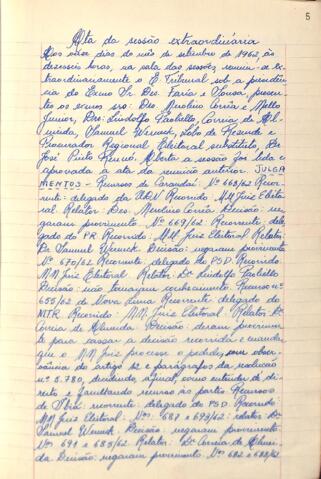 5
Ata da sessão extraordinária
Aos onze dias do mês de setembro de 1962, às
dezesseis horas, na sala das sessões, reuniu-se ex-
traordinariamente o E. Tribunal sob a presidên-
cia do Exmo Sr. Des. Faria e Sousa, presen-
tes os exmos srs: Des. Merolino Corrêa e Mello
Junior, Drs: Lindolfo Paoliello, Corrêa de Al-
meida, Samuel Werneck, Lobo de Resende e
Procurador Regional Eleitoral substituto, Dr.
José Pinto Renó. Aberta a sessão foi lida e
aprovada a ata da reunião anterior. JULGA
MENTOS - Recursos de Carandaí: Nº 668/62 Recor-
rente: delegado da UDN Recorrido: MM Juiz Eleito-
ral. Relator: Des. Merolino Corrêa Decisão: ne-
garam provimento. Nº 669/62: Recorrente, dele-
gado do PR. Recorrido: MM Juiz Eleitoral Relator
Dr. Samuel Werneck Decisão: negaram provimento
Nº 670/62 Recorrente: delegado do PSD. Recorrido
M.M. Juiz Eleitoral. Relator: Dr. Lindolfo Paoliello
Decisão: não tomaram conhecimento. Recurso nº
655/62 de Nova Lima Recorrente: delegado do
M.T.R. Recorrido: M.M. Juiz Eleitoral. Relator: Dr.
Corrêa de Almeida. Decisão: deram provimen-
to para cassar a decisão recorrida e mandar
que o M.M. Juiz processe o pedido, com obser-
vância do artigo 12 e parágrafos da resolução
nº 6.780, decidindo, afinal, como entender de di-
reito e facultando recurso às partes. Recursos
de recorrente: delegado do PSD. Recorrido
MM. Juiz Eleitoral. Nºs. 687 e 693/62: relator Dr.
Samuel Werneck Decisão: negaram provimento
Nºs 691 e 685/62. Relator: Dr. Corrêa de Almei-
da. Decisão: negaram provimento. Nºs 682 e 688/62